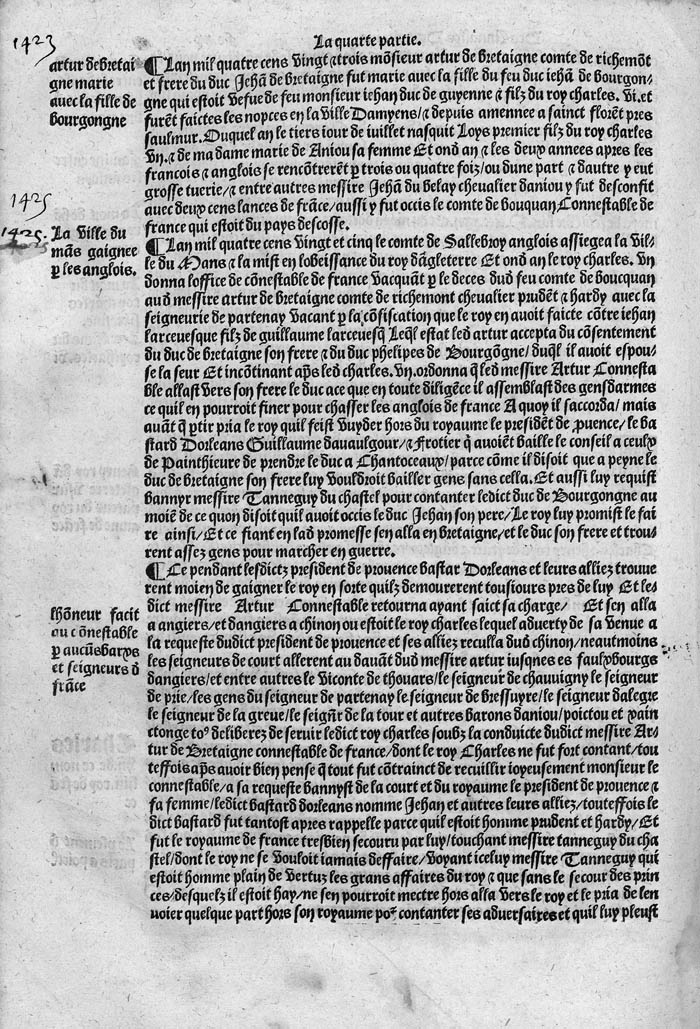 1423
La quarte partie.
artur de bretai
gne marie
avec la fille de
bourgongne
¶ Lan mil quatre cens vingt ⁊ trois mōsieur artur de bretaigne comte de richemōt
et frere du duc Jehā de bretaigne fut marie avec la fille du feu duc iehā de bourgon/
gne qui estoit vefue de feu monsieur iehan duc de guyenne ⁊ filz du roy charles. vi. et
furēt faictes les nopces en la ville Damyens/⁊ depuis amennee a sainct florēt pres
saulmur. Ouquel an le tiers iour de iuillet nasquit Loys premier filz du roy charles
vii. ⁊ de ma dame marie de Aniou sa femme Et ond an ⁊ les deux annees apres les
francois ⁊ anglois se rencōtrerēt p trois ou quatre foiz/ou dune part ⁊ dautre y eut
grosse tuerie/⁊ entre autres messire Jehā du belay chevalier daniou y fut desconfit
avec deux cens lances de frāce/aussi y fut occis le comte de bouquan Connestable de
france qui estoit du pays descosse.
1425
1425.
La ville du
mās gaignee
p les anglois.
¶ Lan mil quatre cens vingt et cinq le comte de Sallebroy anglois assiegea la vil/
le du Mans ⁊ la mist en lobeissance du roy dāgleterre Et ond an le roy charles. vii
donna loffice de cōnestable de france vacquāt p le deces dud feu comte de boucquan
aud messire artur de bretaigne comte de richemont chevalier prudēt ⁊ hardy avec la
seigneurie de partenay vacant p la cōfiscation que le roy en avoit faicte cōtre iehan
larcevesque filz de guillaume larcevesq̄ Leq̄l estat led artur accepta du cōsentement
du duc de bretaigne son frere ⁊ du duc phelipes de Bourgōgne/duq̄l il avoit espou/
se la seur Et incōtinant ap̄s led charles. vii. ordonna q̄ led messire Artur Connesta
ble allast vers son frere le duc ace que en toute diligēce il assemblast des gensdarmes
ce quil en pourroit finer pour chasser les anglois de france A quoy il saccorda/mais
avāt q̄ p̄tir pria le roy quil feist vuyder hors du royaume le presidēt de p̄uence/le ba
stard Dorleans Guillaume davaulgour/⁊ Frotier q̄ avoiēt baille le conseil a ceulx
de Painthieure de prendre le duc a Chantoceaux/parce cōme il disoit que a peyne le
duc de bretaigne son frere luy vouldroit bailler gens sans cella. Et aussi luy requist
bannyr messire Tanneguy du chastel pour contanter ledict duc de Bourgongne au
moiē de ce quon disoit quil avoit occis le duc Jehan son pere/Le roy luy promist le fai
re ainsi/Et ce fiant en lad promesse sen alla en bretaigne/et le duc son frere et trou/
rent assez gens pour marcher en guerre.
¶ Ce pendant lesdictz president de provence bastar Dorleans et leurs alliez trouve
rent moien de gaigner le roy en sorte quilz demourerent tousiours pres de luy Et le/
dict messire Artur Connestable retourna ayant faict sa charge/ Et sen alla
a angiers/et dangiers a chinon ou estoit le roy charles lequel adverty de sa venue a
la requeste dudict president de provence et ses alliez reculla dud chinon/neautmoins
les seigneurs de court allerent au davāt dud messire artur iusques es faulxbourgs
dangiers/et entre autres le viconte de thouars/le seigneur de chauvigny le seigneur
de prie/les gens du seigneur de partenay le seigneur de bressuyre/le seigneur dalegre
le seigneur de la greve/le seignr̄ de la tour et autres barons daniou/poictou et xain
ctonge toꝰ deliberez de servir ledict roy charles soubz la conduicte dudict messire Ar/
tur de Bretaigne connestable de france/dont le roy Charles ne fut fort contant/tou
teffois ap̄s avoir bien pense q̄ tout fut cōtrainct de recuillir ioyeusement monsieur le
connestable/⁊ a sa requeste bannyst de la court et du royaume le president de provence ⁊
sa femme/ledict bastard dorleans nomme Jehan et autres leurs alliez/touteffois le
dict bastard fut tantost apres rappelle parce quil estoit homme prudent et hardy/Et
fut le royaume de france tresbien secouru par luy/touchant messire tanneguy du cha
stel/dont le roy ne se vouloit iamais deffaire/voyant iceluy messire Tanneguy qui
estoit homme plain de vertuz les grans affaires du roy ⁊ que sans le secour des prin
ces/desquelz il estoit hay/ne sen pourroit mectre hors alla vers le roy et le pria de len
voier quelque part hors son royaume por̄ contanter ses adversaires et quil luy pleust
lhōneur facit
au cōnestable
p aucūs barōs
et seigneurs d̄
frāce